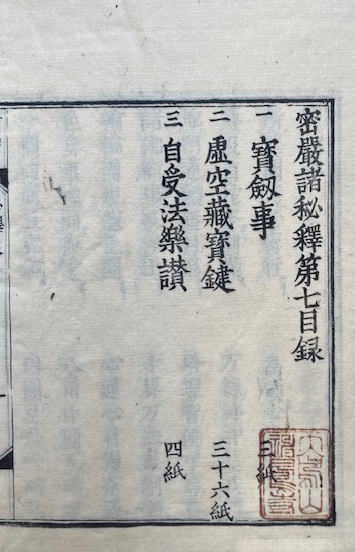 密嚴諸秘釋第七目録
一 寶劔事 三紙
二 虛空藏寶鍵 三十六紙
三 自受法樂讃 四紙